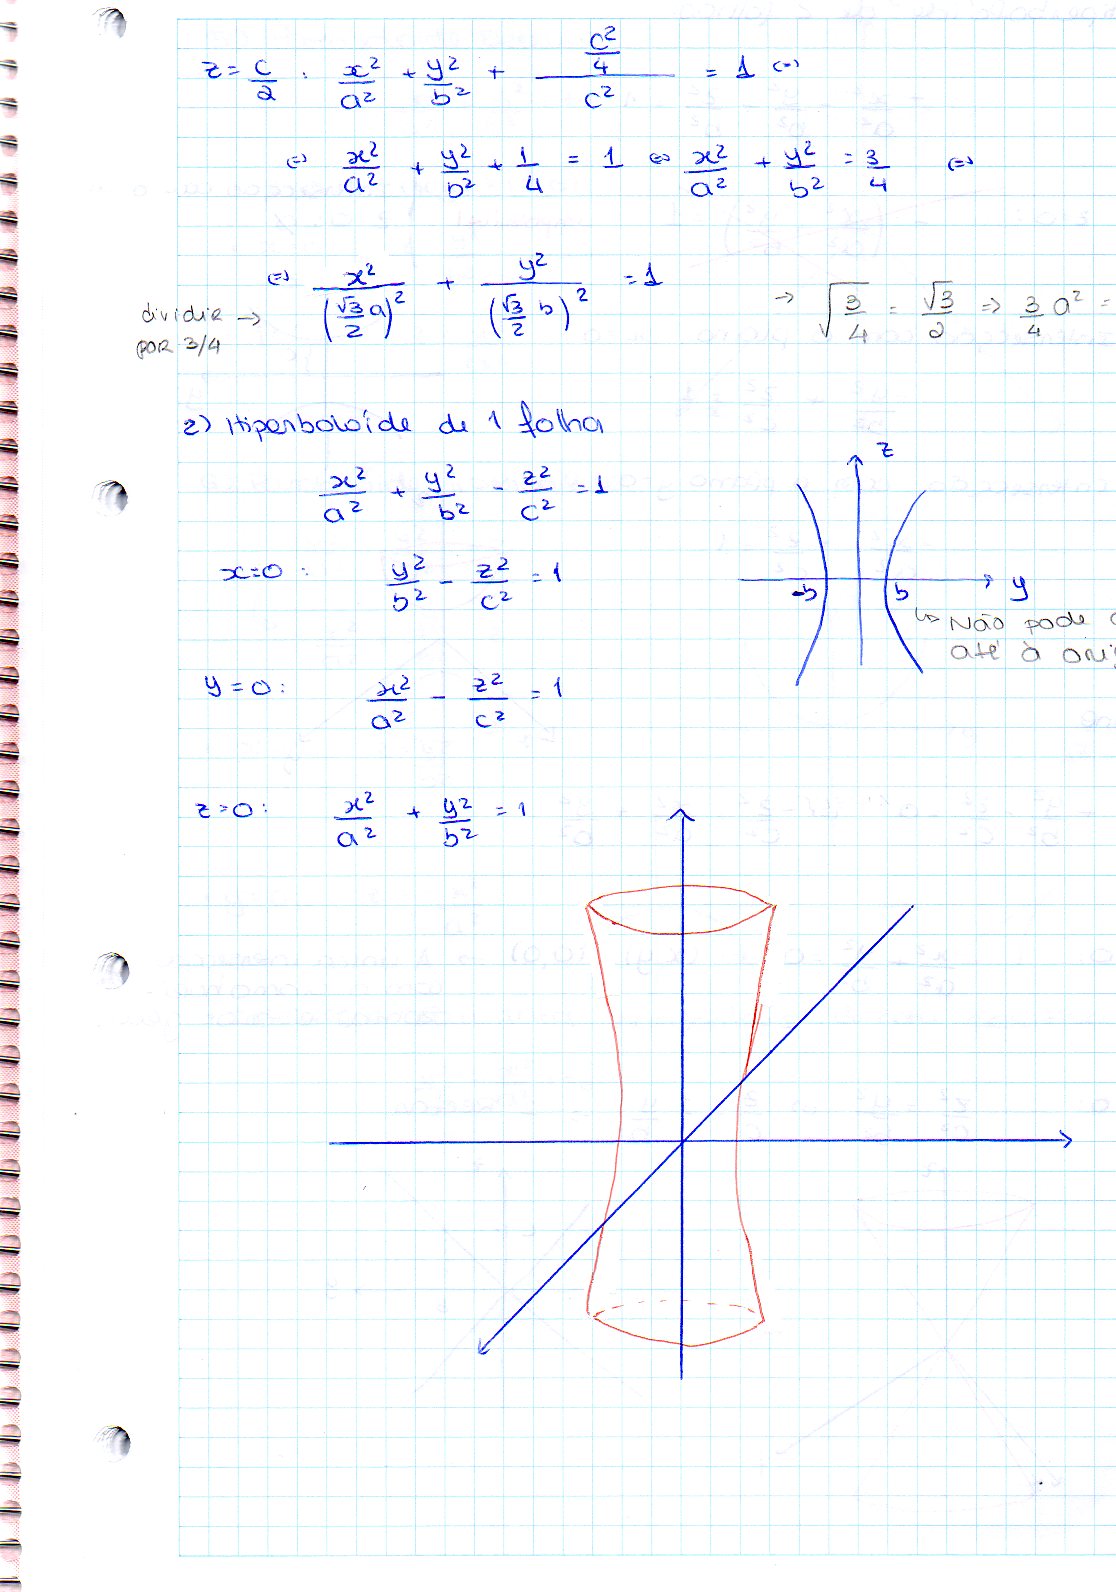 z = c/2 : x²/a² + y²/b² + (c²/4)/c² = 1 ⇔
⇔ x²/a² + y²/b² + 1/4 = 1 ⇔ x²/a² + y²/b² = 3/4 ⇔
⇔ x²/(√3/2 a)² + y²/(√3/2 b)² = 1
dividir →
por 3/4
→ √(3/4) = √3/2 ⇒ 3/4 a² =
2) Hiperboloíde de 1 folha
x²/a² + y²/b² - z²/c² = 1
z
x=0 : y²/b² - z²/c² = 1
-b b y
↳ Não pode
até à
y=0 : x²/a² - z²/c² = 1
z=0 : x²/a² + y²/b² = 1